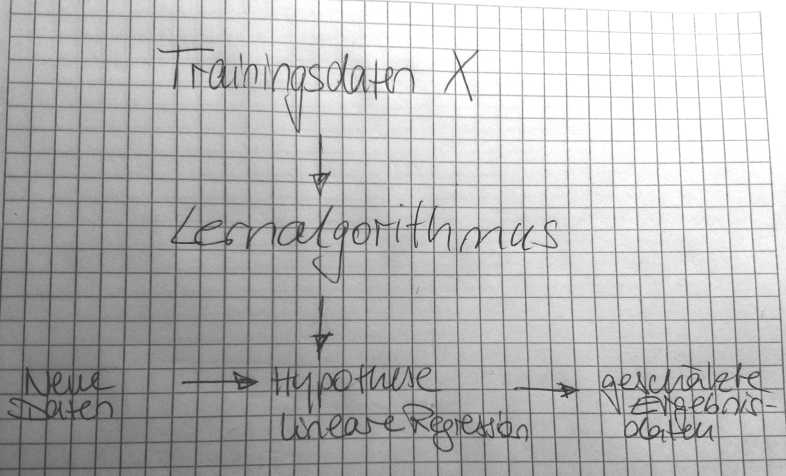 Trainingsdaten X
Lernalgorithmus
Neue
Daten
Hypothese
Lineare Regression
geschätzte
Ergebnis-
daten